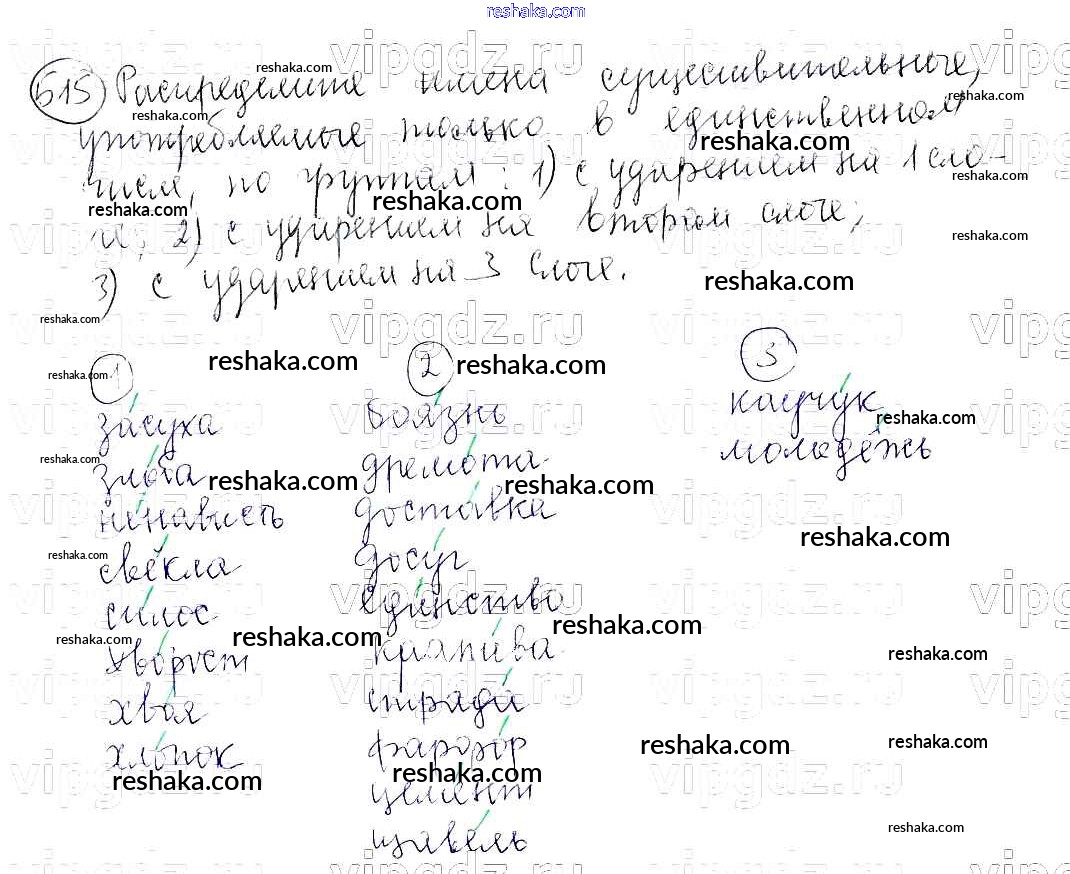 reshaka.com
515 Распределите имена существительные,
употребляемые только в единственном
числе, по группам: 1) с ударением на 1 сло-
ге; 2) с ударением на втором слоге;
3) с ударением на 3 слоге.
1
засуха
злоба
ненависть
свёкла
силос
хворост
хвоя
хлопок
2
боязнь
дремота
доставка
досуг
единство
крапива
страда
фарфор
цемент
щавель
3
каучук
молодёжь
vipgdz.ru
reshaka.com